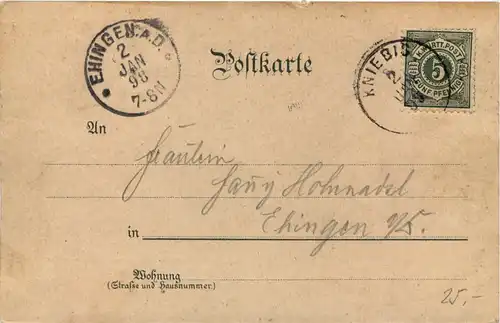 EHINGEN A.D.
2
JAN
98
7-8N
Postkarte
KNIEBIS
K. WÜRTT. POST
5
FÜNF PFENNIG
An
Fräulein
Fany Hohnadel
Ehingen
in
Wohnung
(Straße und Hausnummer.)
25,-